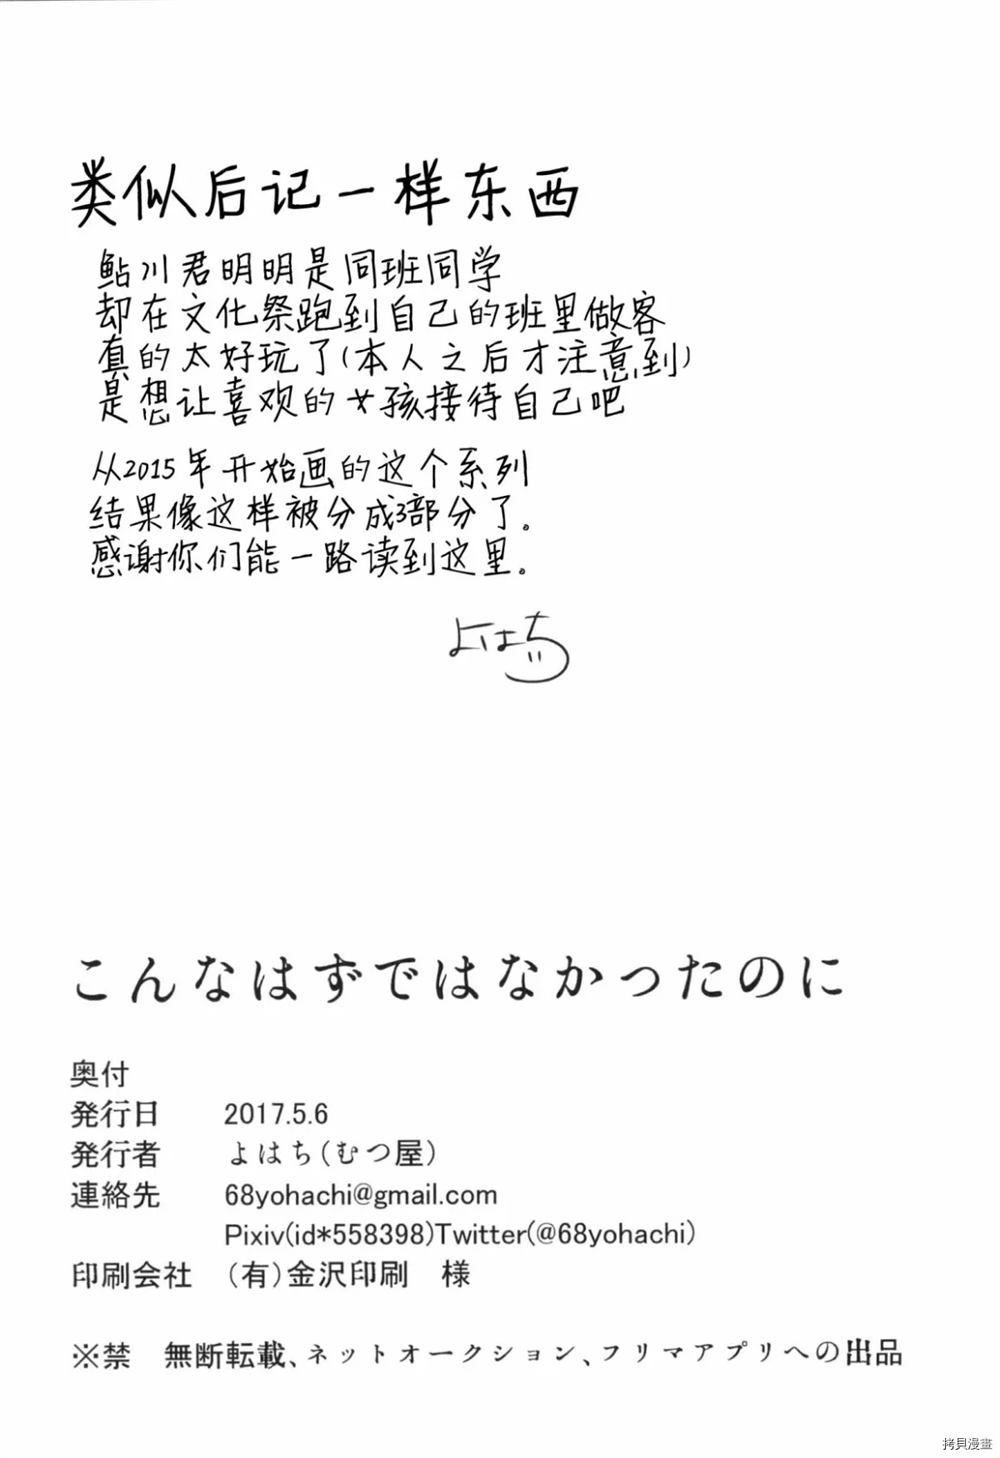 类似后记一样东西
鲇川君明明是同班同学
却在文化祭跑到自己的班里做客
真的太好玩了(本人之后才注意到)
是想让喜欢的女孩接待自己吧
从2015年开始画的这个系列
结果像这样被分成3部分了。
感谢你们能一路读到这里。
よはち
こんなはずではなかったのに
奥付
発行日 2017.5.6
発行者 よはち(むつ屋)
連絡先 68yohachi@gmail.com
Pixiv(id*558398)Twitter(@68yohachi)
印刷会社 (有)金沢印刷 様
※禁 無断転載、ネットオークション、フリマアプリへの出品
拷貝漫畫